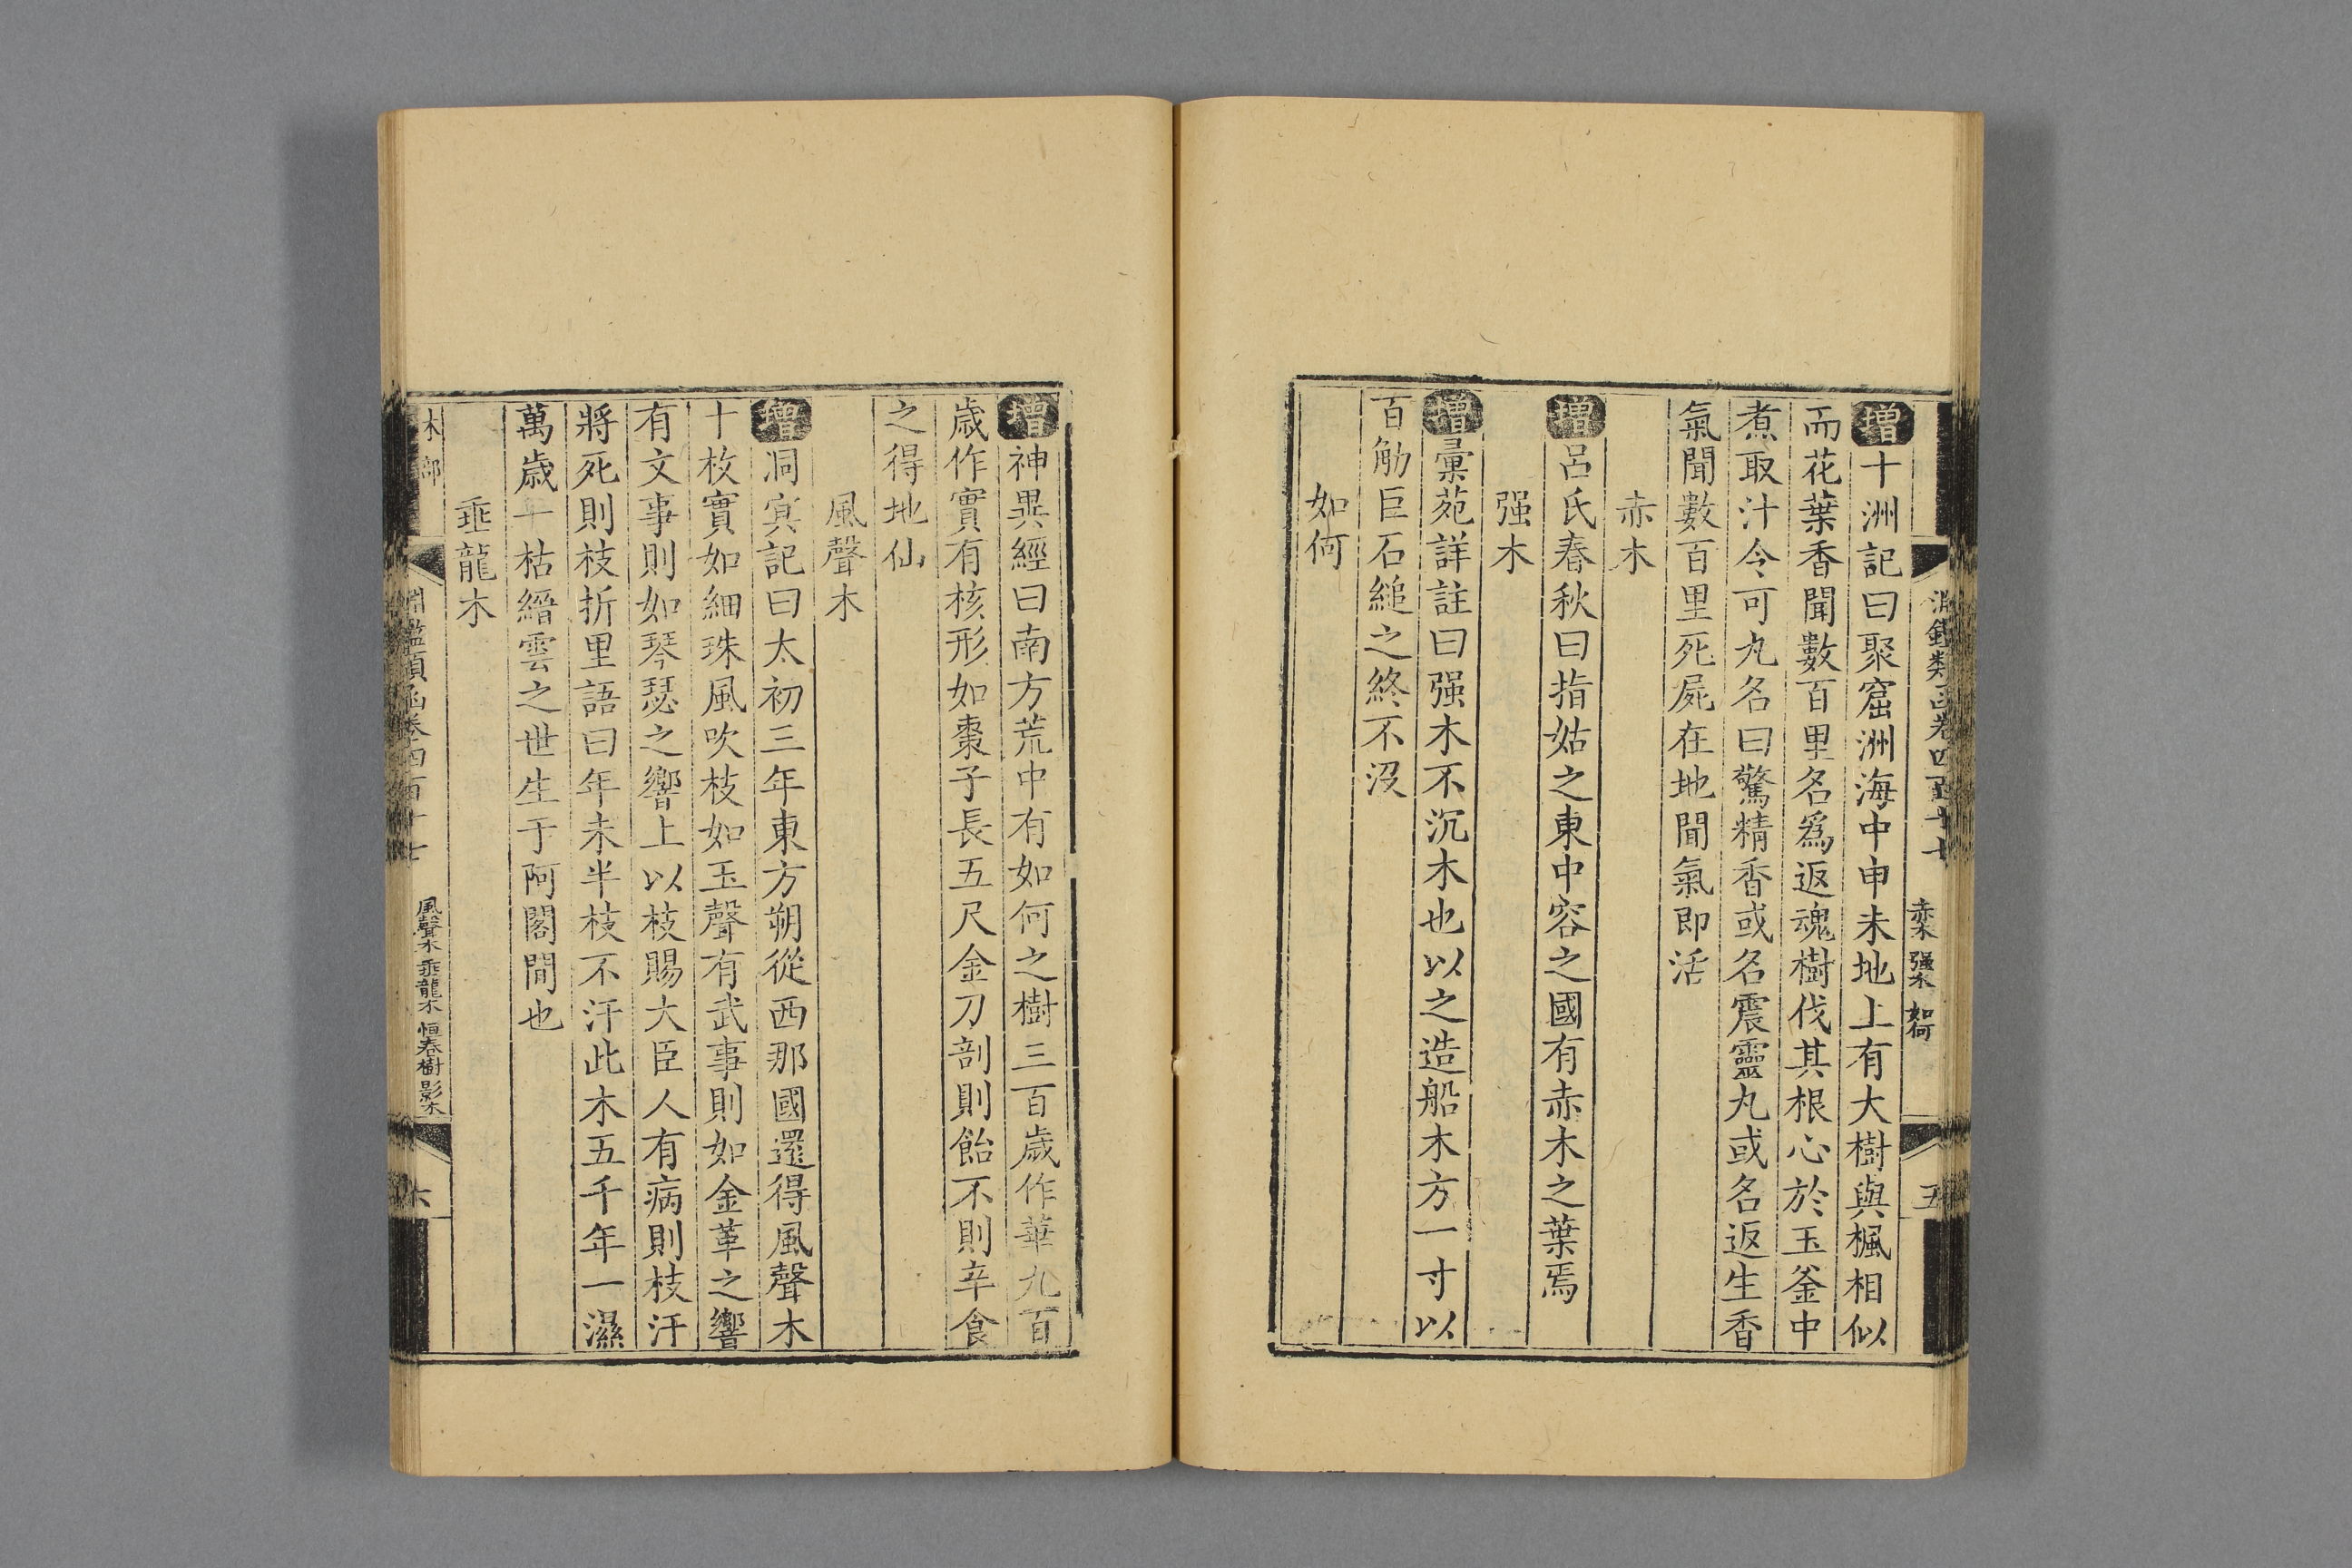 淵鑑類函卷四百十七
赤木 强木 如何
五
增十洲記曰聚窟洲海中申未地上有大樹與楓相似
而花葉香聞數百里名爲返魂樹伐其根心於玉釜中
煮取汁令可丸名曰驚精香或名震靈丸或名返生香
氣聞數百里死屍在地聞氣即活
赤木
增呂氏春秋曰指姑之東中容之國有赤木之葉焉
强木
增彚苑詳註曰强木不沉木也以之造船木方一寸以
百觔巨石縋之終不沒
如何
增神異經曰南方荒中有如何之樹三百歲作華九百
歲作實有核形如棗子長五尺金刀剖則飴不則辛食
之得地仙
風聲木
增洞冥記曰太初三年東方朔從西那國還得風聲木
十枚實如細珠風吹枝如玉聲有武事則如金革之響
有文事則如琴瑟之響上以枝賜大臣人有病則枝汗
將死則枝折里語曰年未半枝不汗此木五千年一濕
萬歲一枯縉雲之世生于阿閣間也
垂龍木
木部
淵鑑類函卷四百十七
風聲木 垂龍木 恒春樹 影木
六